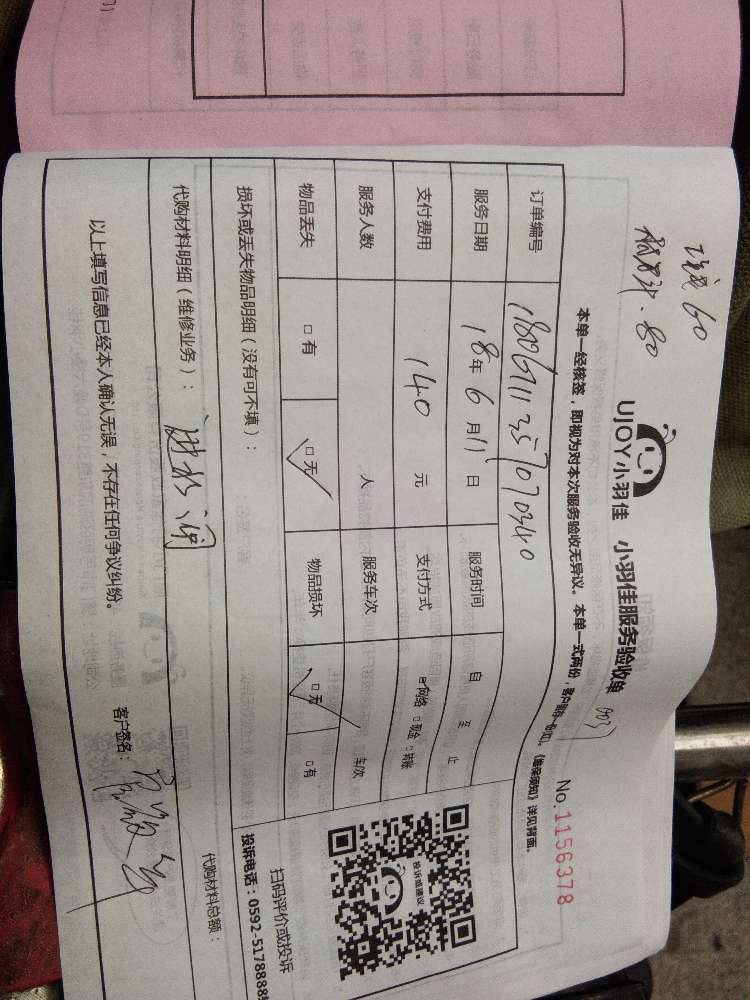 60
80
UJOY小羽佳 小羽佳服务验收单
本单一经核签，即视为对本次服务验收无异议。本单一式两份，客户留存一份(红)。《维保须知》详见背面。
No.1156378
订单编号
服务日期 18年6月11日 服务时间 自 至 止
支付费用 140元 支付方式 □网络 □现金 □转账
服务人数 人 服务车次 车/次
物品丢失 □有 □无 物品损坏 □无 □有
损坏或丢失物品明细（没有可不填）：
扫码评价或投诉
代购材料明细（维修业务）： 代购材料总额：
以上填写信息已经本人确认无误，不存在任何争议纠纷。 客户签名：
投诉或建议